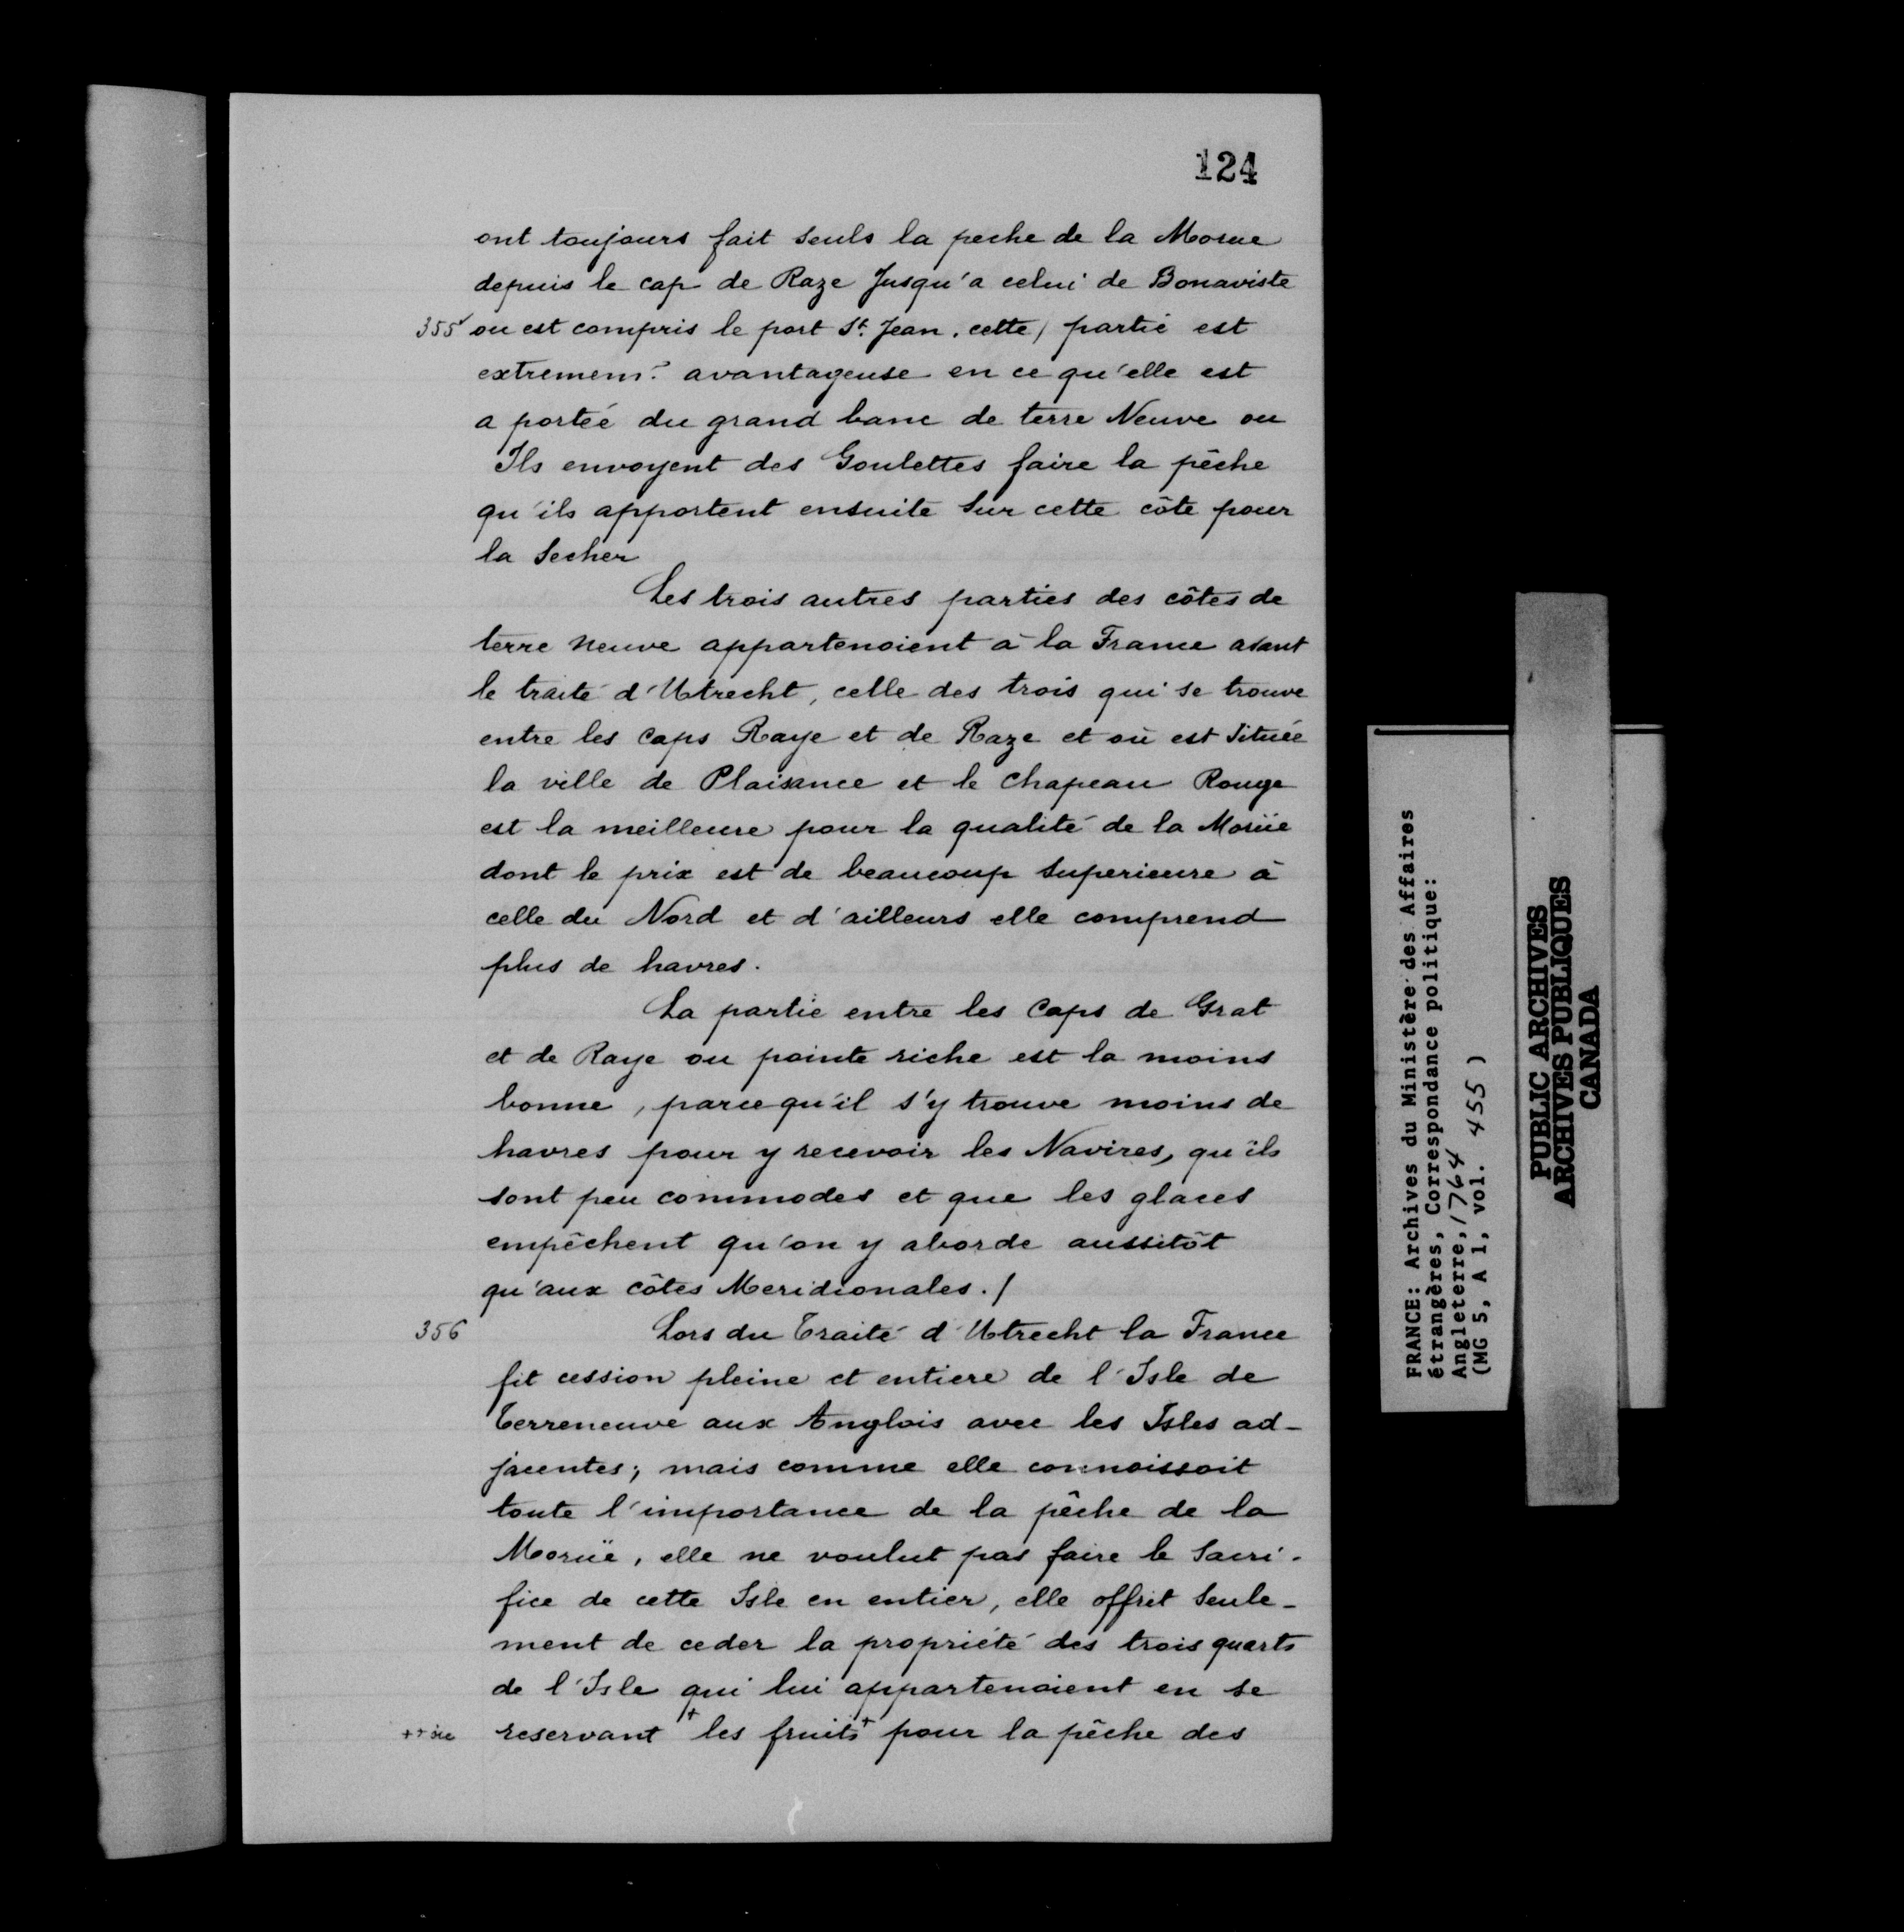 124
ont toujours fait seuls la peche de la Morue
depuis le cap de Raze Jusqu'a celui de Bonaviste
355v ou est compris le port St. Jean, cette / partie est
extremem.t avantageuse en ce qu'elle est
a portée du grand banc de terre Neuve ou
Ils envoyent des Goulettes faire la pêche
qu'ils apportent ensuite sur cette côte pour
la Secher
Les trois autres parties des côtes de
terre neuve appartenoient à la France avant
le traité d'Utrecht, celle des trois qui se trouve
entre les caps Raye et de Raze et où est Située
la ville de Plaisance et le chapeau Rouge
est la meilleure pour la qualité de la Morüe
dont le prix est de beaucoup superieure à
celle du Nord et d'ailleurs elle comprend
plus de havres.
La partie entre les Caps de Grat
et de Raye ou pointe riche est la moins
bonne, parcequ'il s'y trouve moins de
havres pour y recevoir les Navires, qu'ils
sont peu commodes et que les glaces
empêchent qu'on y aborde aussitôt
qu'aux côtes Meridionales. /
356 Lors du Traité d'Utrecht la France
fit cession pleine et entiere de l'Isle de
Terreneuve aux Anglois avec les Isles ad-
jacentes; mais comme elle connoissoit
toute l'importance de la pêche de la
Morüe, elle ne voulut pas faire le Sacri-
fice de cette Isle en entier, elle offrit Seule-
ment de ceder la propriété des trois quarts
de l'Isle qui lui appartenoient en se
++ sic reservant + les fruits + pour la pêche des
FRANCE: Archives du Ministère des Affaires
étrangères, Correspondance politique:
Angleterre, 1764
(MG 5, A 1, vol. 455)
PUBLIC ARCHIVES
ARCHIVES PUBLIQUES
CANADA